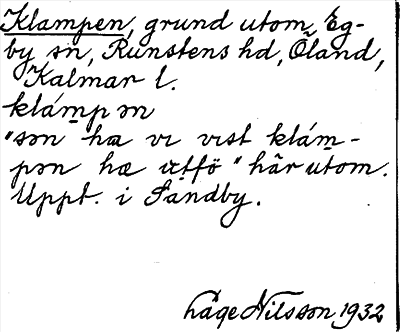 Klampen, grund utom Eg-
by sn, Runstens hd, Öland,
Kalmar l.
klámpən
"sən hæ vı vıst klám-
pən hæ ʉtfö" här utom.
Uppt. i Sandby.
Låge Nilsson 1932